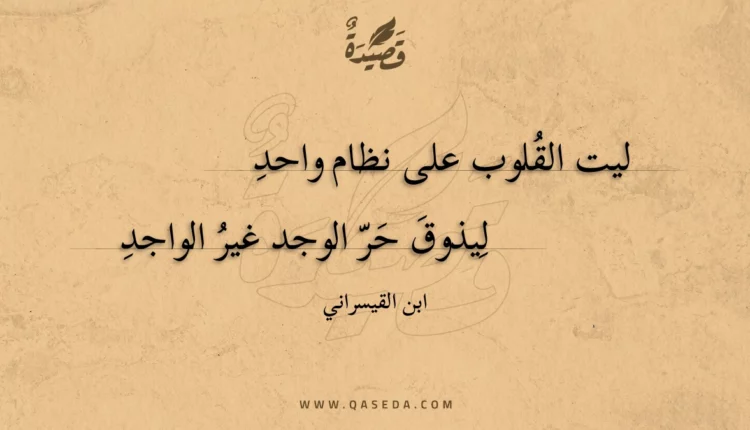 قَصِيْدَةٌ
ليت القُلوب على نظام واحدِ
لِيذوقَ حَرّ الوجد غيرُ الواجدِ
ابن القيسراني
WWW.QASEDA.COM